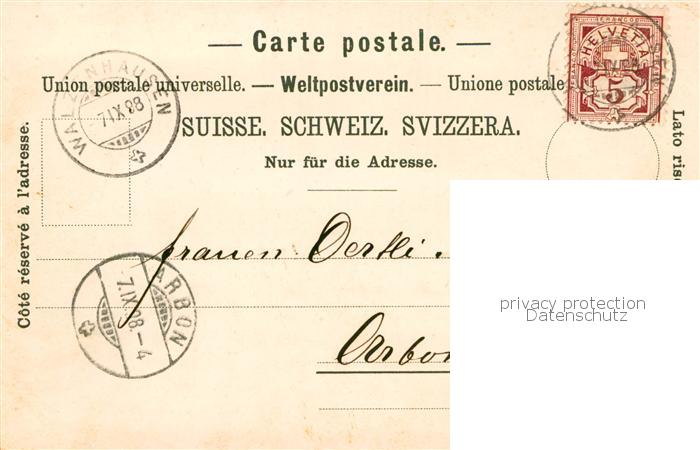 — Carte postale. —
Union postale universelle. — Weltpostverein. — Unione postale
SUISSE. SCHWEIZ. SVIZZERA.
Nur für die Adresse.
Côté réservé à l'adresse.
Lato rise
WALZENHAUSEN
7.IX.98
FRANCO
HELVETIA
5
Frauen Oertli
Arbon
ARBON
7.IX.98.-4
privacy protection
Datenschutz